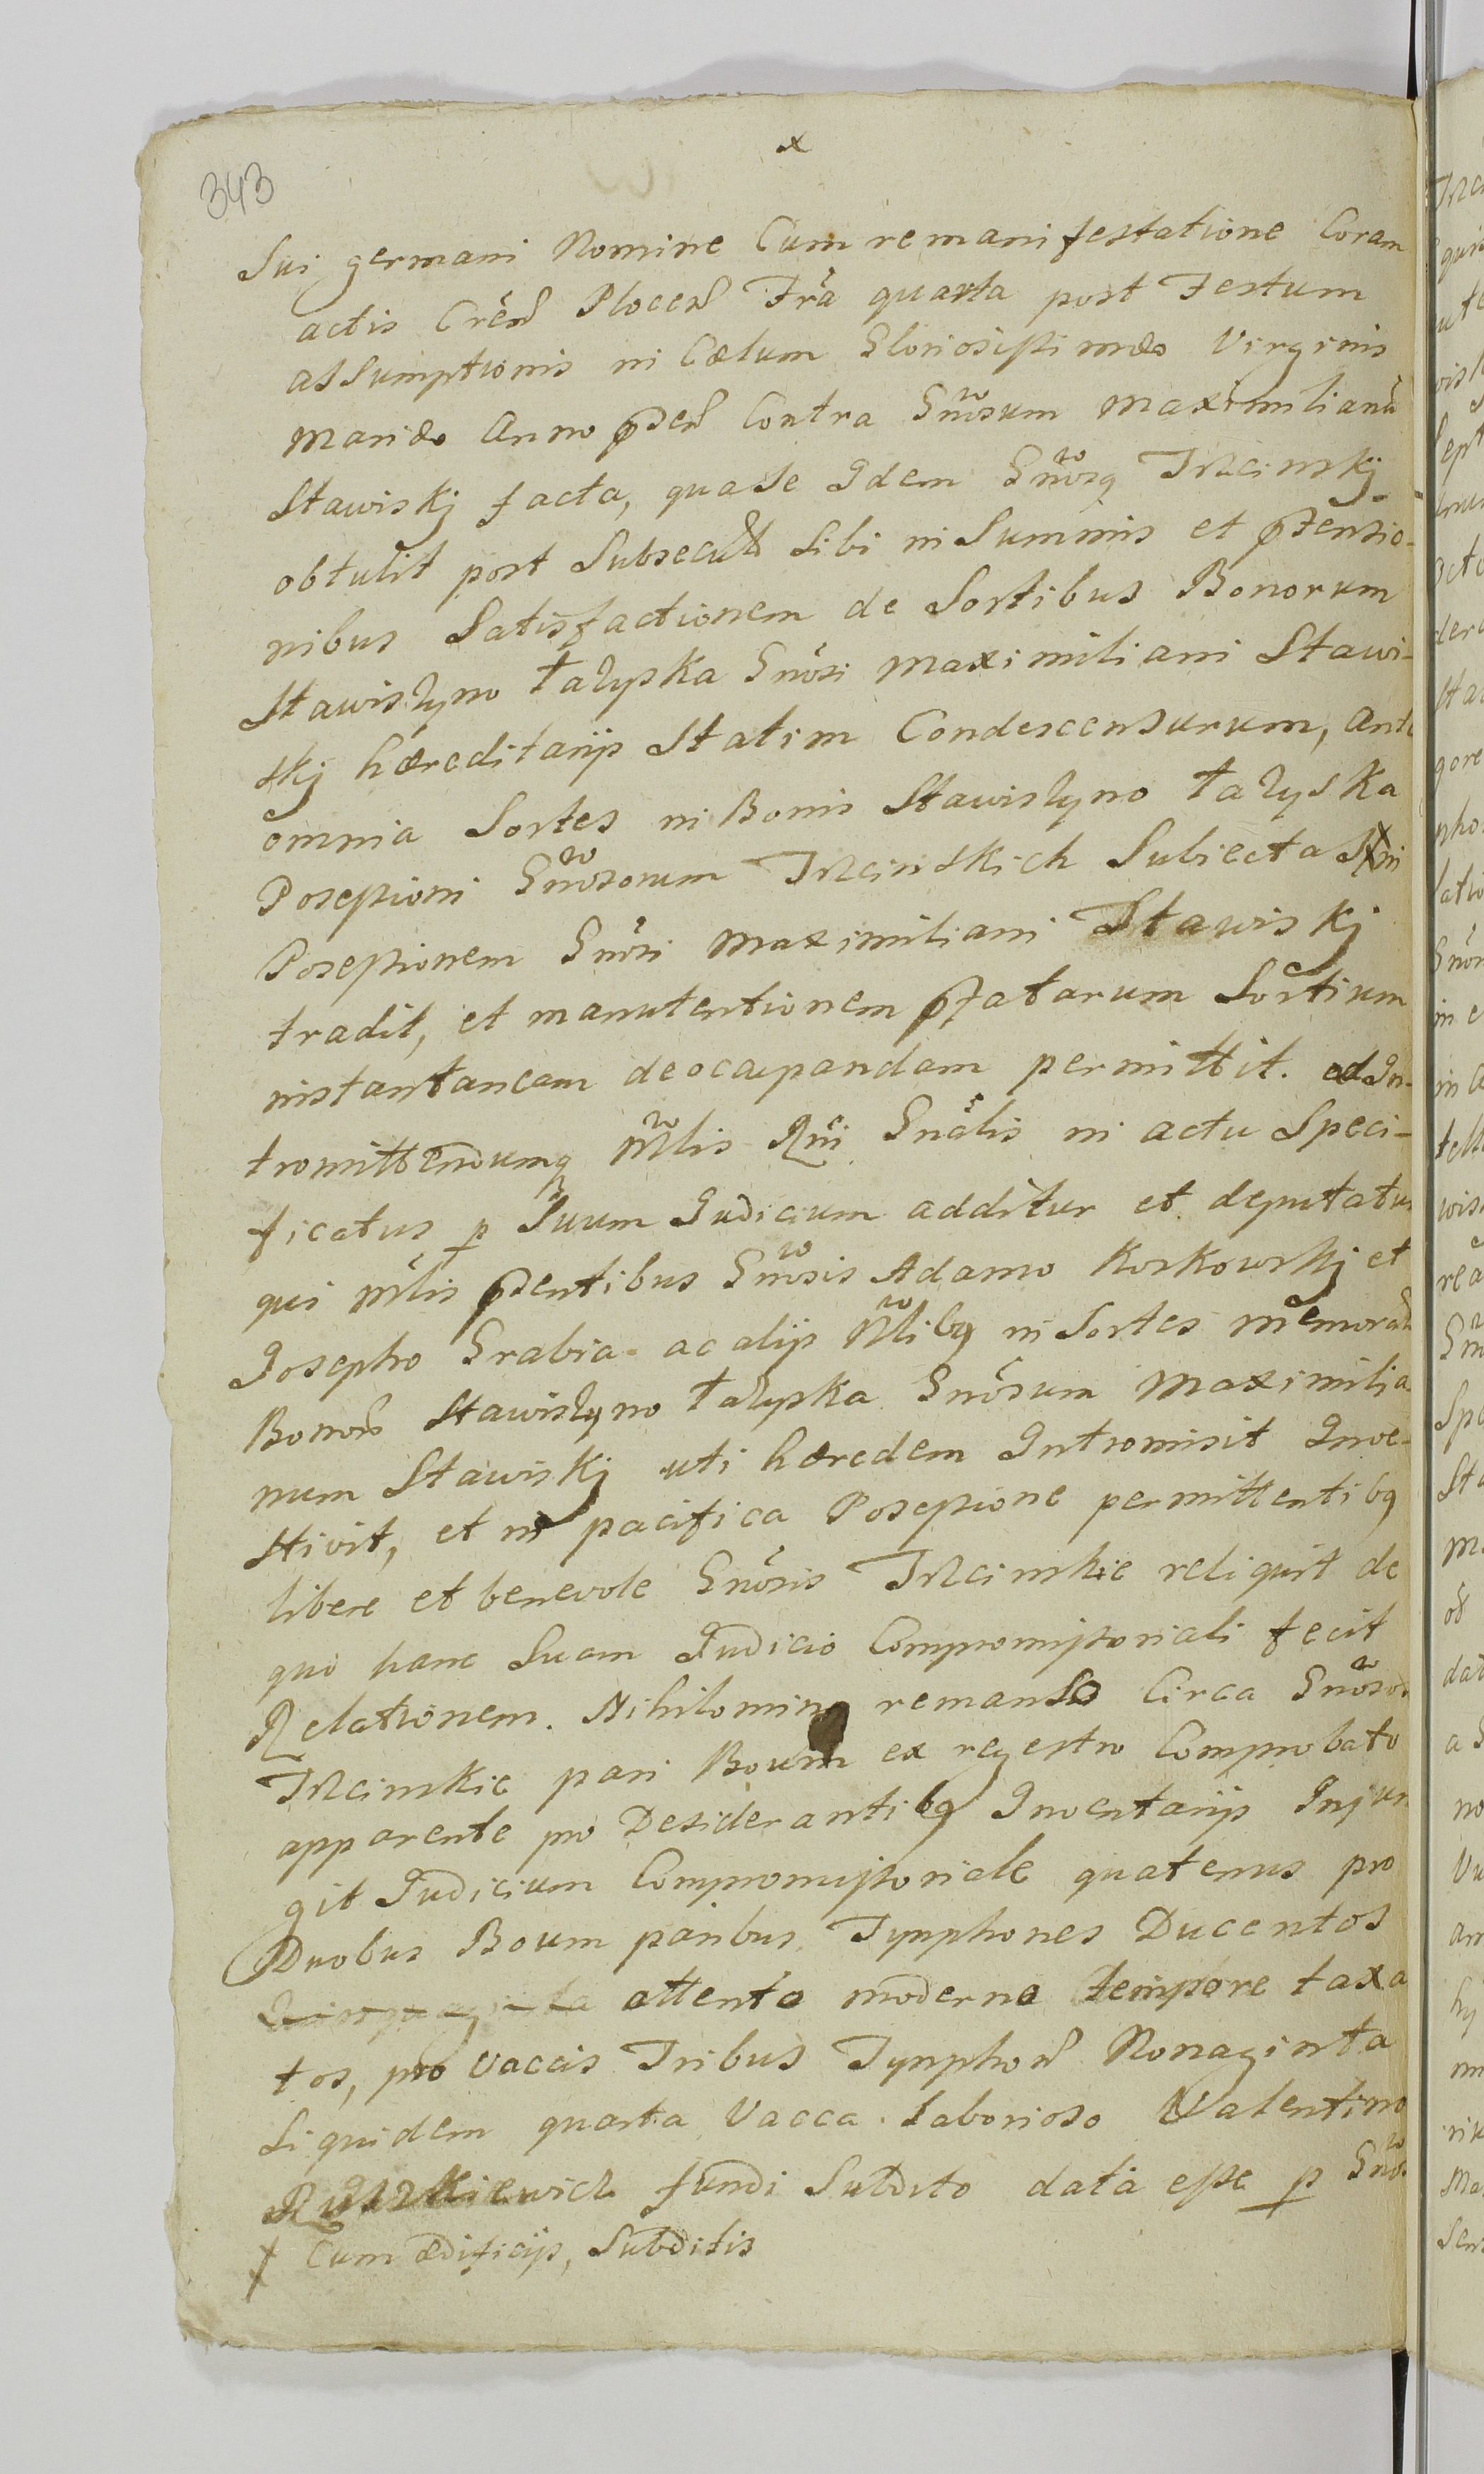 x
343
Sui germani Nomine Cum remanifestatione Coram
actis Crẽn Plocen Frã quarta post Festum
assumptionis in Cœlum Gloriosissimæ Virginis
Mariæ Anno pñden Contra Gnõsum Maximilianũ
Stawiskj facta, qua se Idem Gnõsq Trzcinskj
obtulit post Subsecut Sibi in Summis et ptensio-
nibus Satisfactionem de Sortibus Bonorum
Stawiszyno Łazyska Gnõsi Maximiliani Stawi-
skj hæreditariis Statim Condescensurum, Ante
omnia Sortes in Bonis Stawiszyno Łazyska
Possessioni Gnõsorum Trzcinskich Subiectas X in
Possessionem Gnõsi Maximiliani Stawiskj
tradit, et manutentionem pfatarum Sortium
instantaneam deocupandam permittit. ad In-
tromittendumq Mlis Rni Gnãlis in actu Speci-
ficatus p Suum Iudicium additur et deputatus
qui Mlis psentibus Gnõsis Adamo Korkowskj et
Josepho Grabia ac aliis Nlibq in Sortes memorat
Bonorũ Stawiszyno Łazyska Gnõsum Maximilia
num Stawiskj uti hæredem Intromisit Inve-
stivit, et in pacifica Possessione permittentibq
libere et benevole Gnõsis Trzcinskie reliquit de
quo hanc Suam Iudicio Compromissoriali fecit
Relationem. Nihilominq remanso Circa Gnõsos
Trzcinskie pari Boum ex regestro Comprobato
apparente pro Desiderantibq Inventariis Injun
git Iudicium Compromissoriale quatenus pro
Duobus Boum paribus Tynphones Ducentos
Quinquaginta attento moderno tempore taxa
tos, pro Vaccis Tribus Tynphon Nonaginta
Siquidem quarta Vacca Laborioso Valentino
Ruszkiewicz fundi Subdito data esse p Gnõ
X Cum ædificiis, Subditis